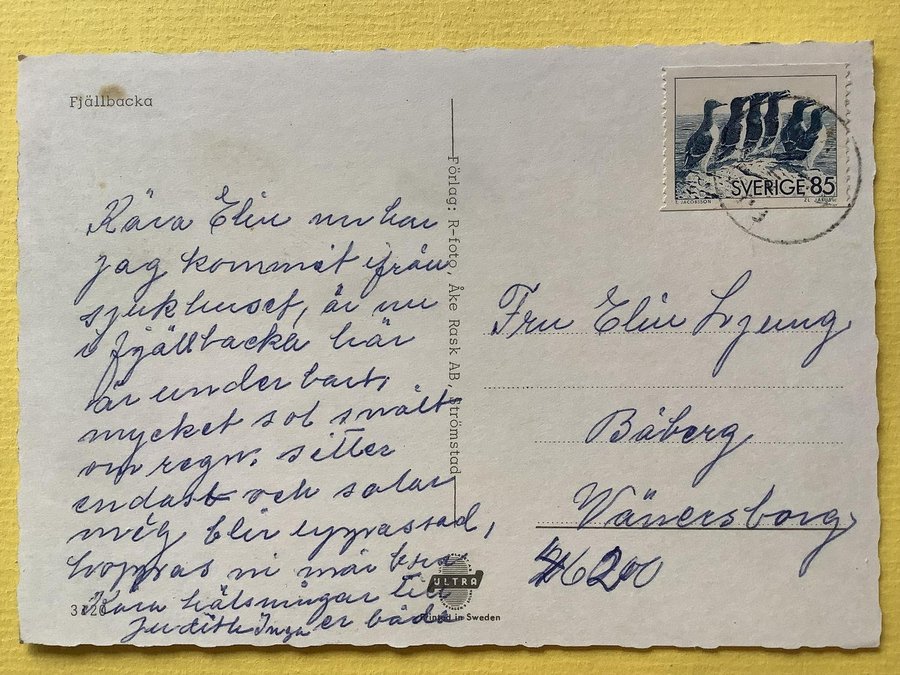 Fjällbacka
Kära Elin nu har
jag kommit ifrån
sjukhuset, är nu
i fjällbacka här
är underbart,
mycket sol snålt
om regn. sitter
endast och solar
mig blir uppassad,
hoppas ni mår bra
Kära hälsningar till
er båda
Judith Inga
Förlag: R-foto, Åke Rask AB, Strömstad
SVERIGE 85
E. JACOBSSON
Fru Elin Ljung
Båberg
Vänersborg
46200
ULTRA
Printed in Sweden